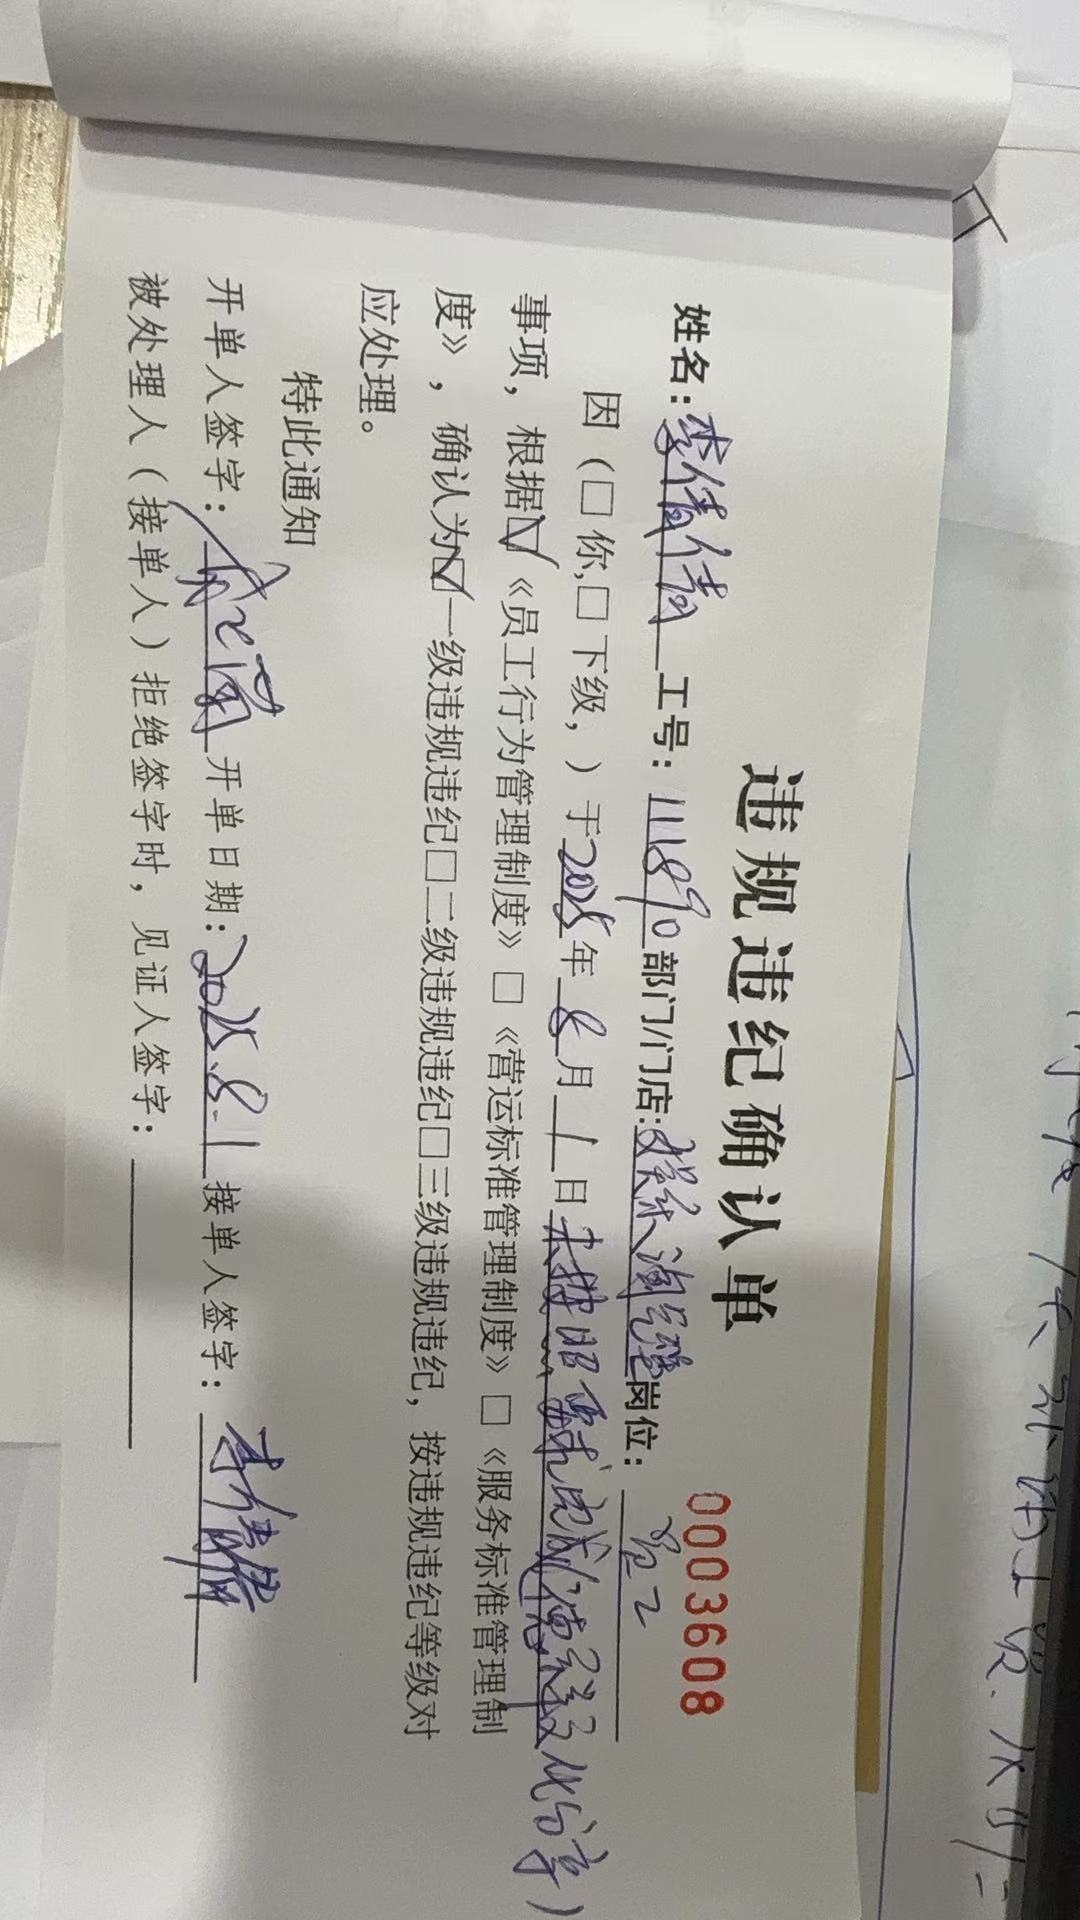 违规违纪确认单
0003608
姓名：李倩倩 工号：111890 部门/门店： 岗位：员工
因（□你,□下级，）于2025年8月1日未按照要求完成 文化分享）
事项，根据☑《员工行为管理制度》□《营运标准管理制度》□《服务标准管理制
度》，确认为☑一级违规违纪□二级违规违纪□三级违规违纪，按违规违纪等级对
应处理。
特此通知
开单人签字： 开单日期：2025.8.1 接单人签字：李倩
被处理人（接单人）拒绝签字时，见证人签字：